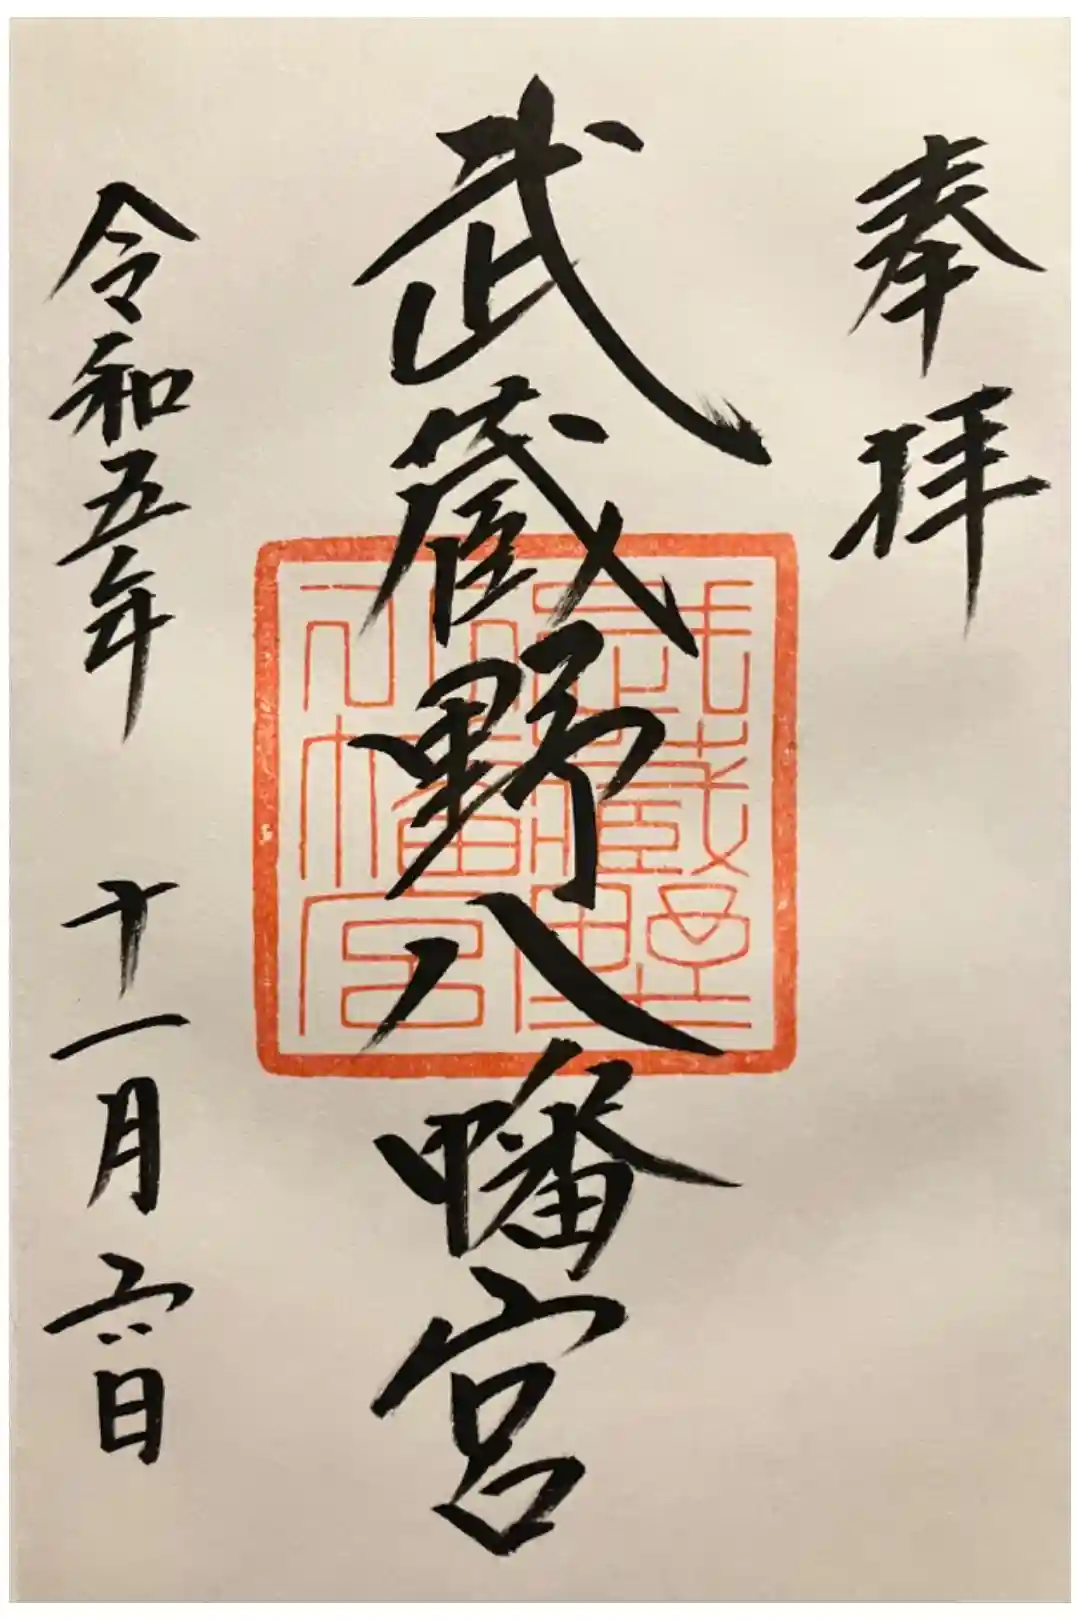 奉拝
武蔵野八幡宮
武蔵野八幡宮
令和五年 十一月六日